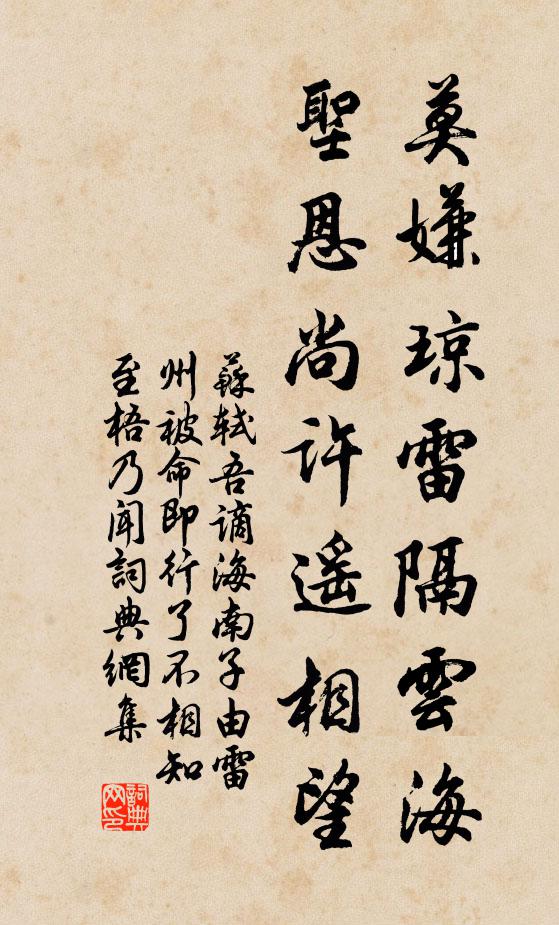 莫嫌琼雷隔雲海
聖恩尚许遥相望
蘇轼吾谪海南子由雷
州被命即行了不相知
至梧乃闻詞典網集
詞典
网印